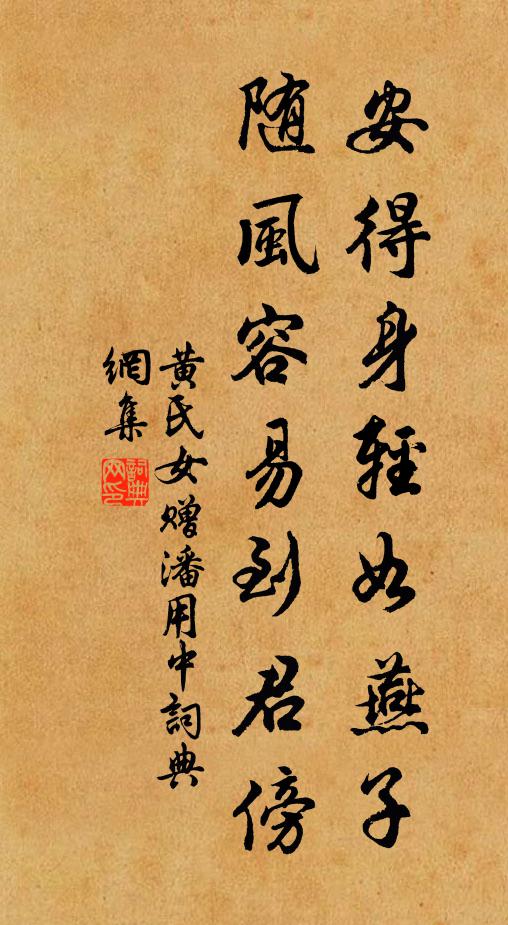 安得身輕如燕子
随風容易到君傍
黃氏女 贈潘用中 詞典
網集
詞典
网印